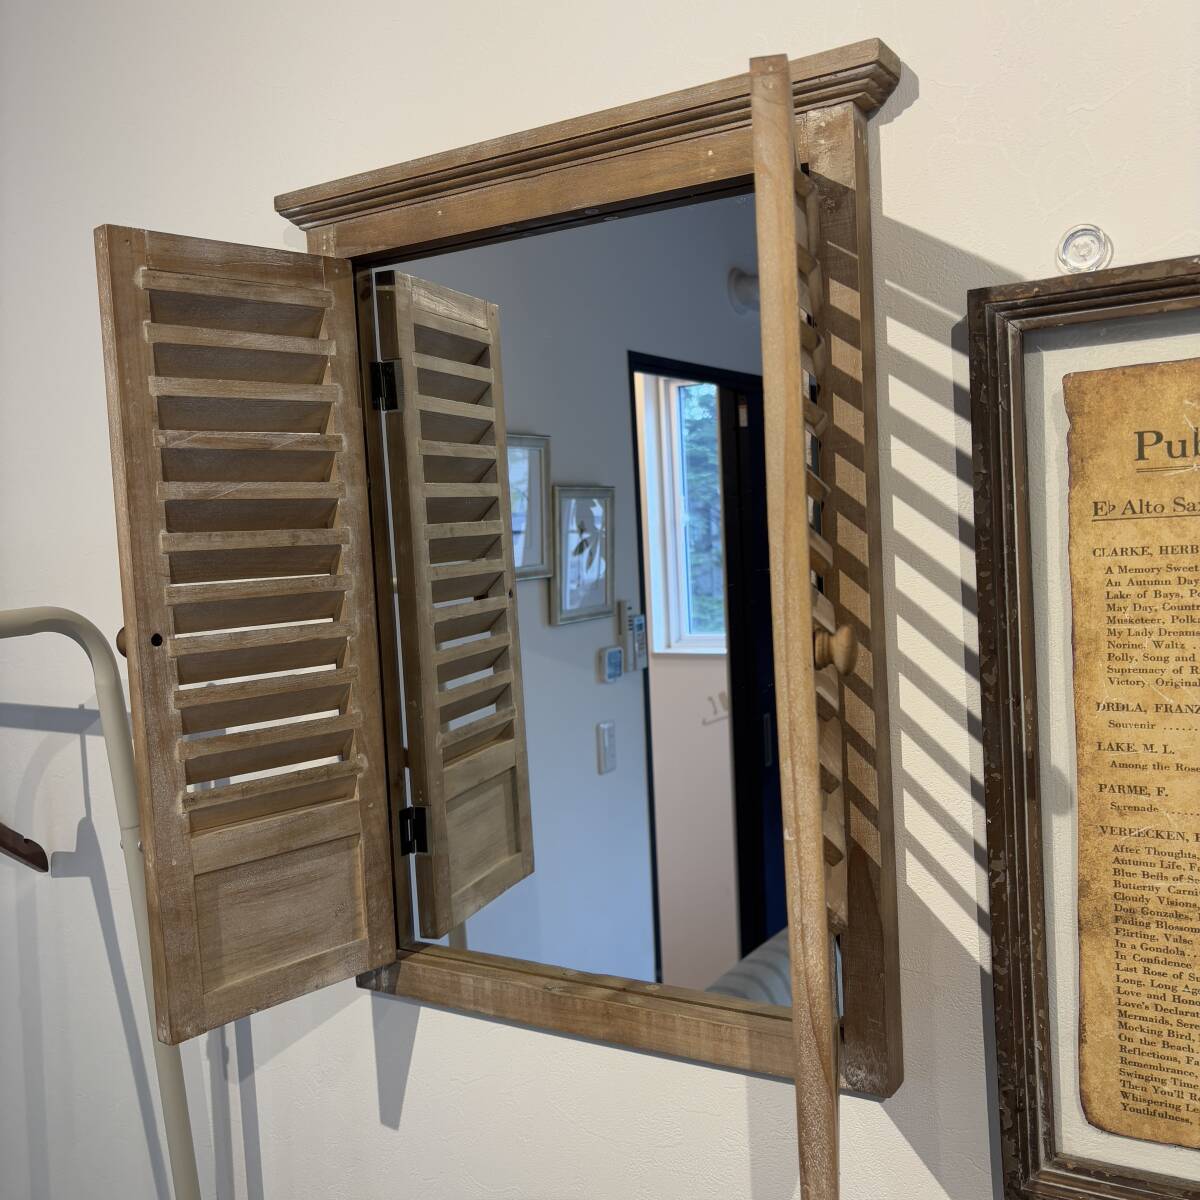 Pul
E♭ Alto Sax
CLARKE, HERB
A Memory Sweet
An Autumn Day
Lake of Bays, Po
May Day, Countr
Musketeer, Polka
My Lady Dreams
Norine, Waltz ..
Polly, Song and
Supremacy of R
Victory, Original
DRDLA, FRANZ
Souvenir ......
LAKE, M. L.
Among the Rose
PARME, F.
Serenade .....
VEREECKEN, B
After Thoughts,
Autumn Life, Fa
Blue Bells of Sc
Butterfly Carni
Cloudy Visions,
Don Gonzales,
Fading Blossom
Flirting, Valse
In a Gondola...
In Confidence
Last Rose of Su
Long, Long Ago
Love and Hono
Love's Declarat
Mermaids, Sere
Mocking Bird,
On the Beach.
Reflections, Fa
Remembrance,
Swinging Time
Then You'll Re
Whispering Le
Youthfulness,